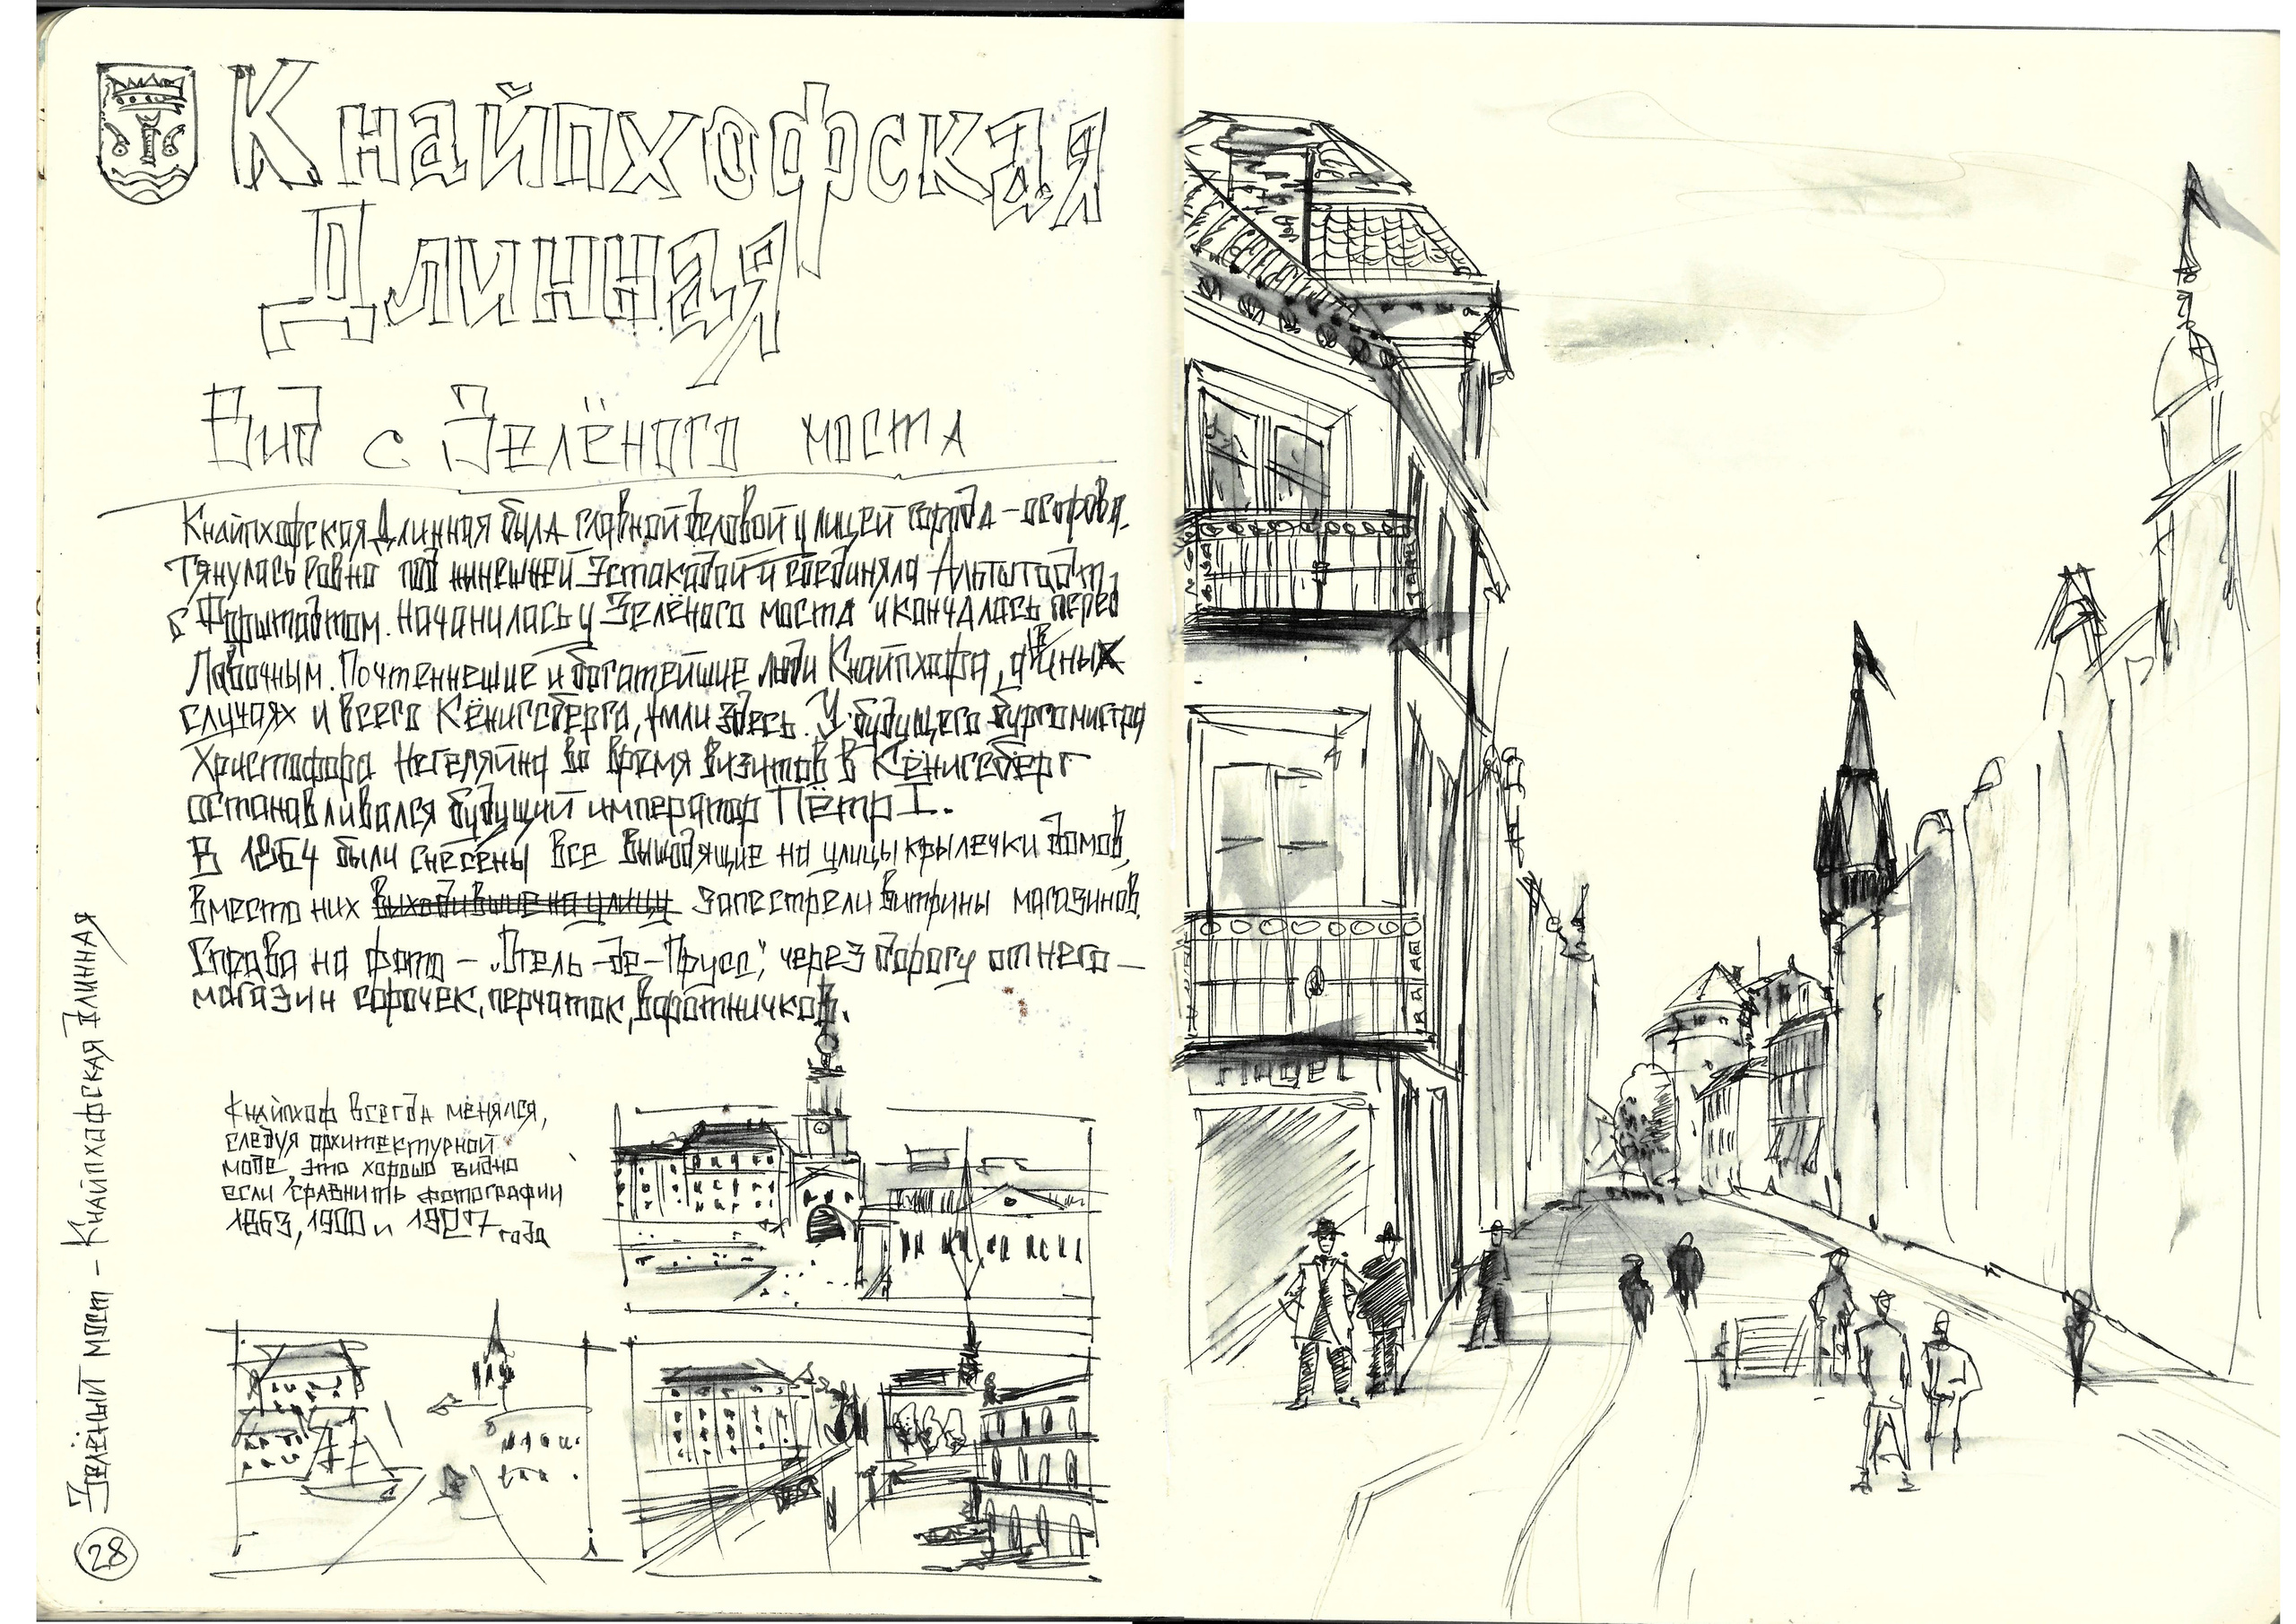 Кнайпхофская
Длинная
Вид с Зелёного моста
Кнайпхофская Длинная была главной деловой улицей города-острова.
Тянулась ровно под нынешней Эстакадой и соединяла Альтштадт
с Форштадтом. Начиналась у Зелёного моста и кончалась перед
Лавочным. Почтеннешие и богатейшие люди Кнайпхофа, а в иных
случаях и всего Кёнигсберга, жили здесь. У будущего бургомистра
Христофора Негеляйна во время визитов в Кёнигсберг
останавливался будущий император Пётр I.
В 1864 были снесены все выходящие на улицы крылечки домов,
вместо них выходившие на улицу запестрели витрины магазинов.
Справа на фото – „Отель-де-Прусс", через дорогу от него –
магазин сорочек, перчаток, воротничков.
Кнайпхоф всегда менялся,
следуя архитектурной
моде, это хорошо видно
если сравнить фотографии
1863, 1900 и 1927 года
Зелёный мост – Кнайпхофская Длинная
28